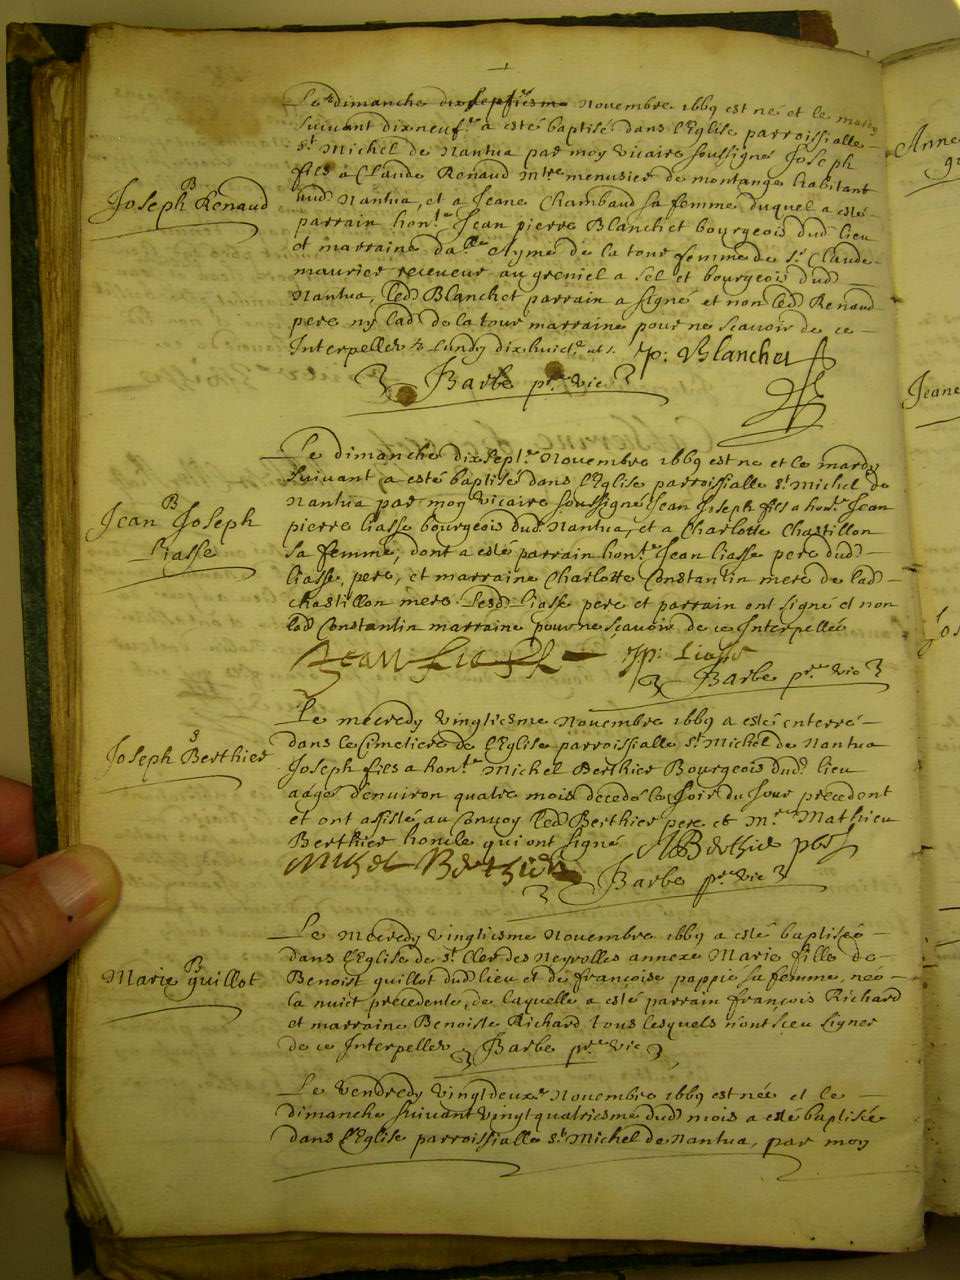 Le dimanche dixseptiesme Novembre 1669 est né et le mardy
suivant dixneufe a esté baptisé dans l'Eglise parroissialle
St Michel de Nantua par moy vicaire soussigné Joseph
B
Joseph Renaud
fils a Claude Renaud mtre menusier de montange habitant
aud Nantua, et a Jeane Chambaud sa femme duquel a esté
parrain honle Jean pierre Blanchet bourgeois dud lieu
et marraine dalle Aymé de la tour femme de Sr Claude
maurier receveur au greniel a sel et bourgeois dud
Nantua, led Blanchet parrain a signé et non led Renaud
pere ny lad de la tour marraine pour ne scavoir de ce
Interpellés Lundy dixhuict
Jp: Blanchet
Barbe pre vic
Le dimanche dixsepte Novembre 1669 est ne et le mardy
suivant a esté baptisé dans l'Eglise parroissialle St Michel de
Nantua par moy vicaire soussigné Jean Joseph fils a honle Jean
B
Jean Joseph
Liasse
pierre Liasse bourgeois dud Nantua, et a Charlotte Chastillon
sa femme, dont a esté parrain honle Jean Liasse pere dud
Liasse, pere, et marraine Charlotte Constantin mere de lad
Chastillon mere. Lesd Liasse pere et parrain ont signé et non
lad Constantin marraine pour ne sçavoir de ce Interpellée
Jean Liasse Jp: Liasse
Barbe pre vic
Le mecredy vingtiesme Novembre 1669 a esté enterré
S
Joseph Berthier
dans le Cimetiere de l'Eglise parroissialle St Michel de Nantua
Joseph fils a honle Michel Berthier Bourgeois dud lieu
aagé d'environ quatre mois decedé le soir du Jour precedent
et ont assisté au Convoy led Berthier pere et Mre Mathieu
Berthier qui ont signé M Berthier pbre
Michel Berthier
Barbe pre vic
Le Mecredy vingtiesme Novembre 1669 a esté baptiseé
dans l'Eglise de St Cler des Neyrolles annexe Marie fille de
B
Marie Guillot
Benoist guillot dud lieu et de françoise pappie sa femme, nee
la nuict precedente, de laquelle a esté parrain françois Richard
et marraine Benoiste Richard tous lesquels n'ont sceu signer
de ce Interpellés Barbe pre vic
Le vendredy vingtdeuxe Novembre 1669 est née et le
dimanche suivant vingtquatriesme dud mois a esté baptisée
dans l'Eglise parroissialle St Michel de Nantua, par moy
Anne
Jeane
Jos